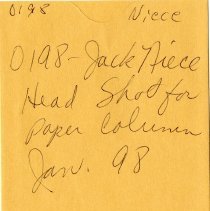 0198 Niece
0198-Jack Niece
Head Shot for
paper column
Jan. 98